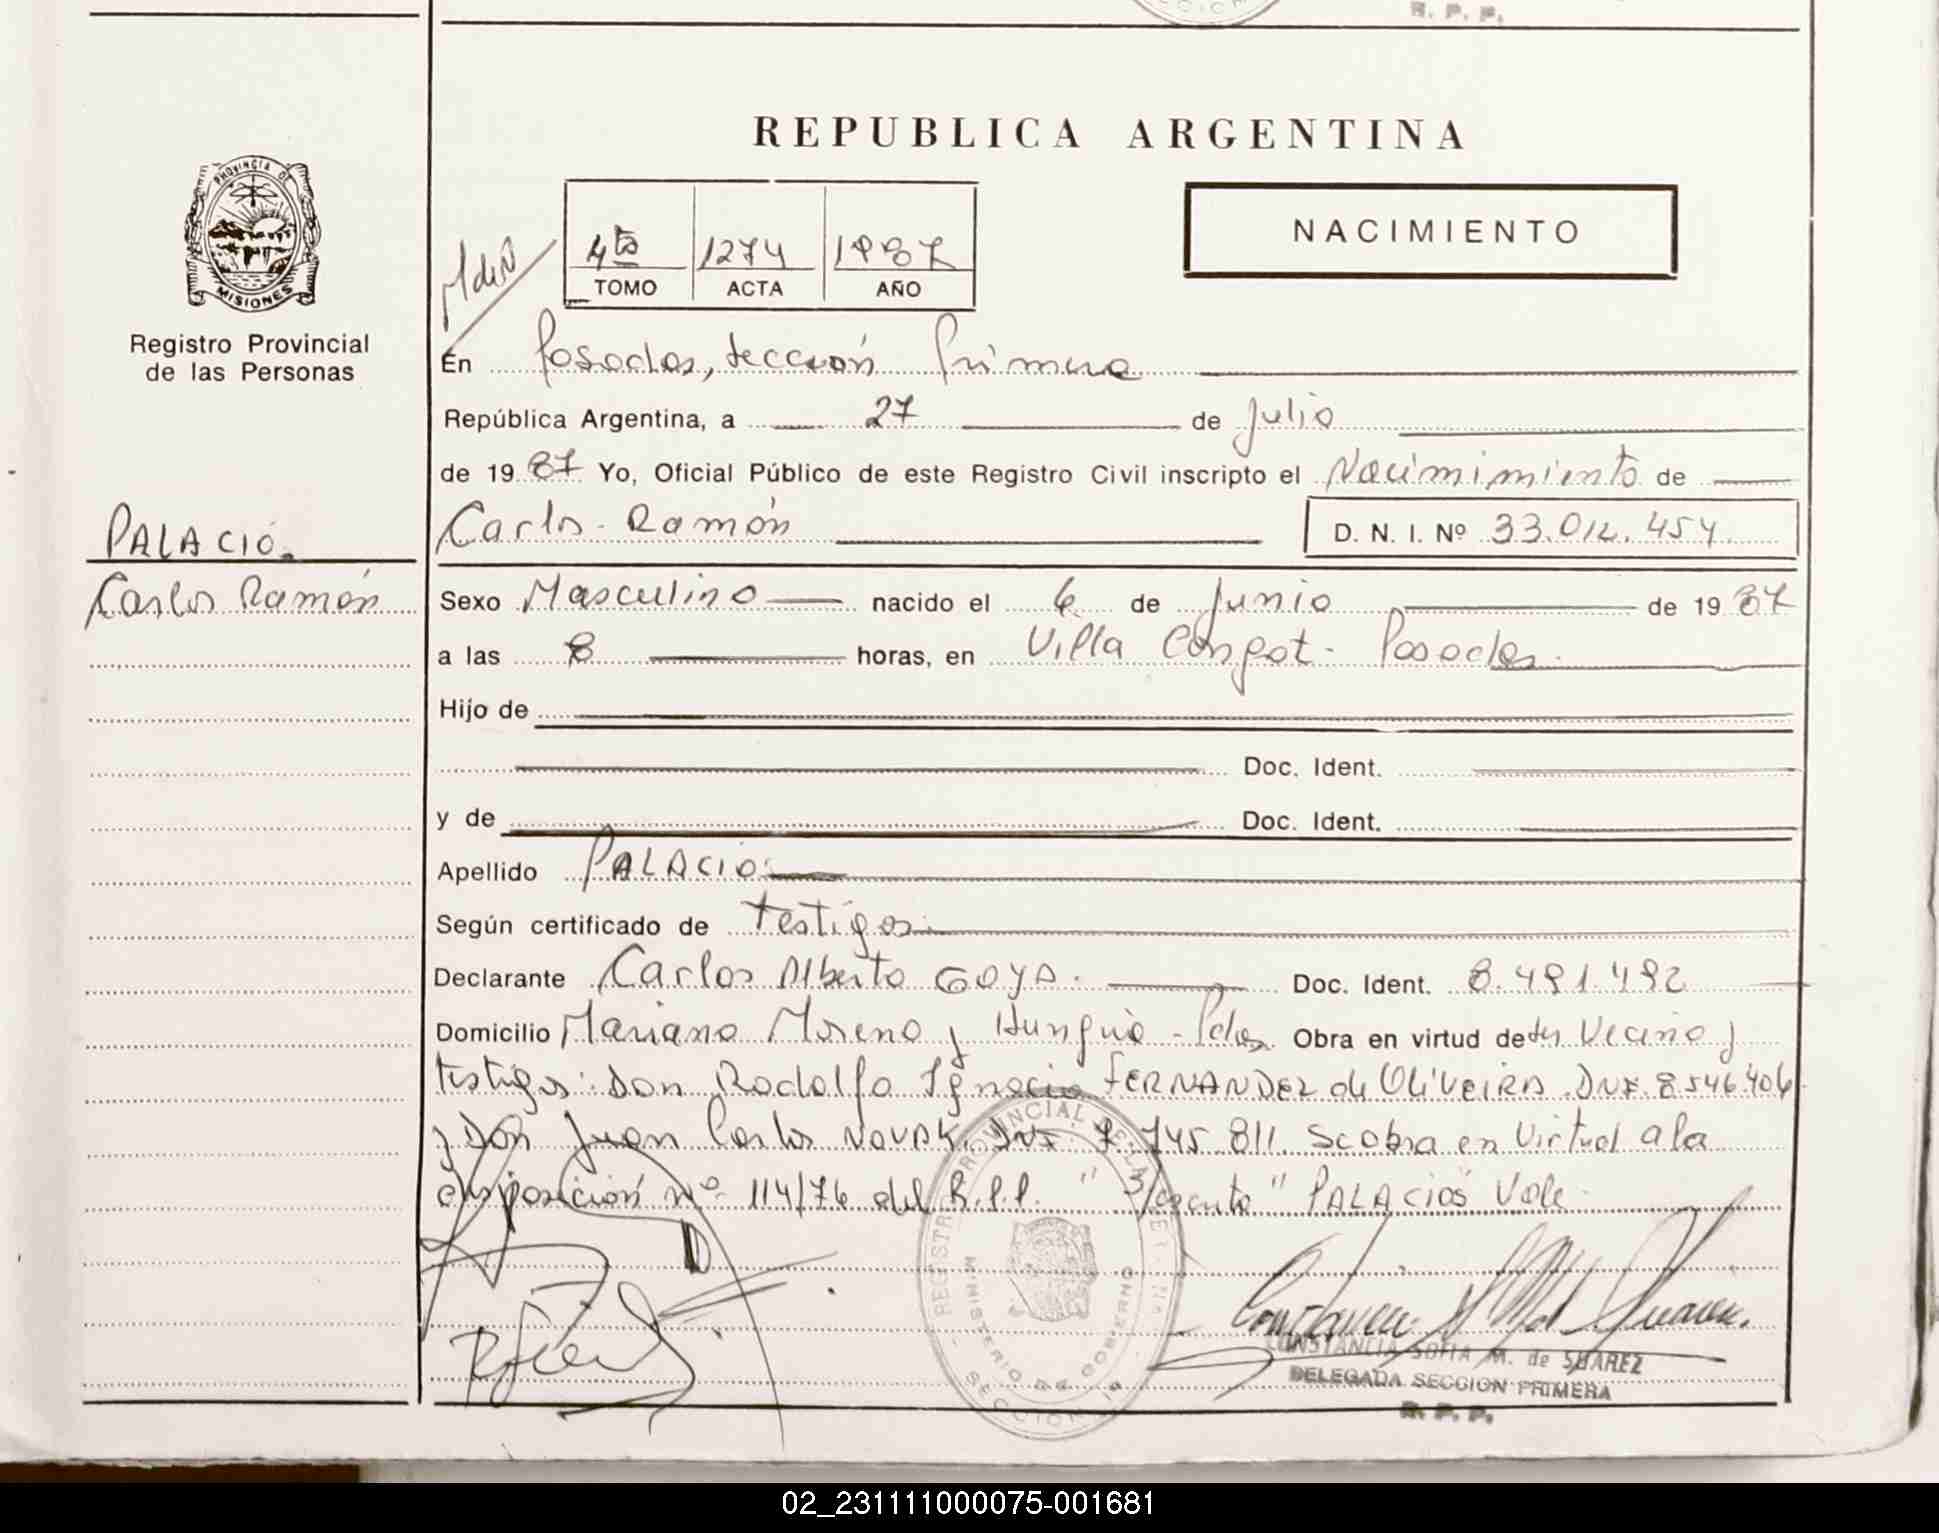 R. P. P.
REPUBLICA ARGENTINA
PROVINCIA DE
MISIONES
Registro Provincial
de las Personas
NACIMIENTO
4to 1274 1987
TOMO ACTA AÑO
En Posadas, sección Primera
República Argentina, a 27 de Julio
de 1987 Yo, Oficial Público de este Registro Civil inscripto el Nacimimiento de
Carlos Ramón D. N. I. Nº 33.012.454
PALACIO
Carlos Ramón
Sexo Masculino nacido el 6 de Junio de 1987
a las 8 horas, en Villa Posadas
Hijo de
Doc. Ident.
y de Doc. Ident.
Apellido PALACIO
Según certificado de testigos
Declarante Carlos Alberto GOYA Doc. Ident. 8.491.492
Domicilio Mariano Moreno y Hungria - Pdas Obra en virtud de Vecino y
testigos: Don Rodolfo Ignacio FERNANDEZ de OLIVEIRA DNI. 8.546.406
y Don Juan Carlos NOVAK. DNI. 7.745.811. Se obra en Virtud a la
disposición nº 114/76 del R.P.P. " S/acento " PALACIOS Vale
REGISTRO PROVINCIAL DE LAS PERSONAS
MINISTERIO DE GOBIERNO
SECCION 1a
CONSTANCIA SOFIA M. de SUAREZ
DELEGADA SECCION PRIMERA
R. P. P.
02_231111000075-001681